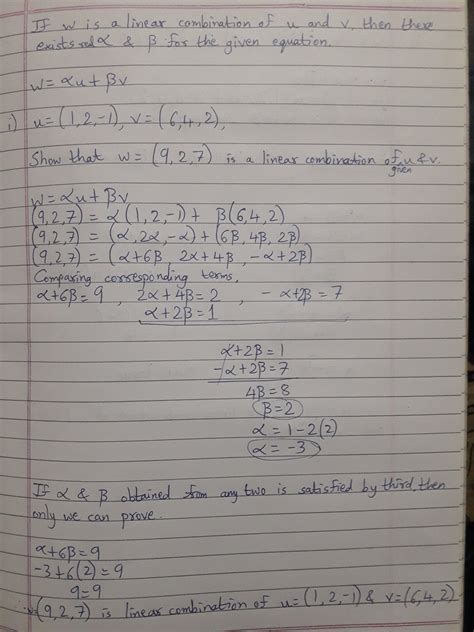 If w is a linear combination of u and v, then there
exists real α & β for the given equation.
w = αu + βv
i) u = (1, 2, -1), v = (6, 4, 2),
Show that w = (9, 2, 7) is a linear combination of given u & v.
w = αu + βv
(9, 2, 7) = α(1, 2, -1) + β(6, 4, 2)
(9, 2, 7) = (α, 2α, -α) + (6β, 4β, 2β)
(9, 2, 7) = (α+6β, 2α+4β, -α+2β)
Comparing corresponding terms,
α+6β = 9 , 2α+4β = 2 , -α+2β = 7
α+2β = 1
α+2β = 1
-α+2β = 7
4β = 8
β = 2
α = 1-2(2)
α = -3
If α & β obtained from any two is satisfied by third then
only we can prove.
α+6β = 9
-3+6(2) = 9
9 = 9
(9, 2, 7) is linear combination of u = (1, 2, -1) & v = (6, 4, 2)